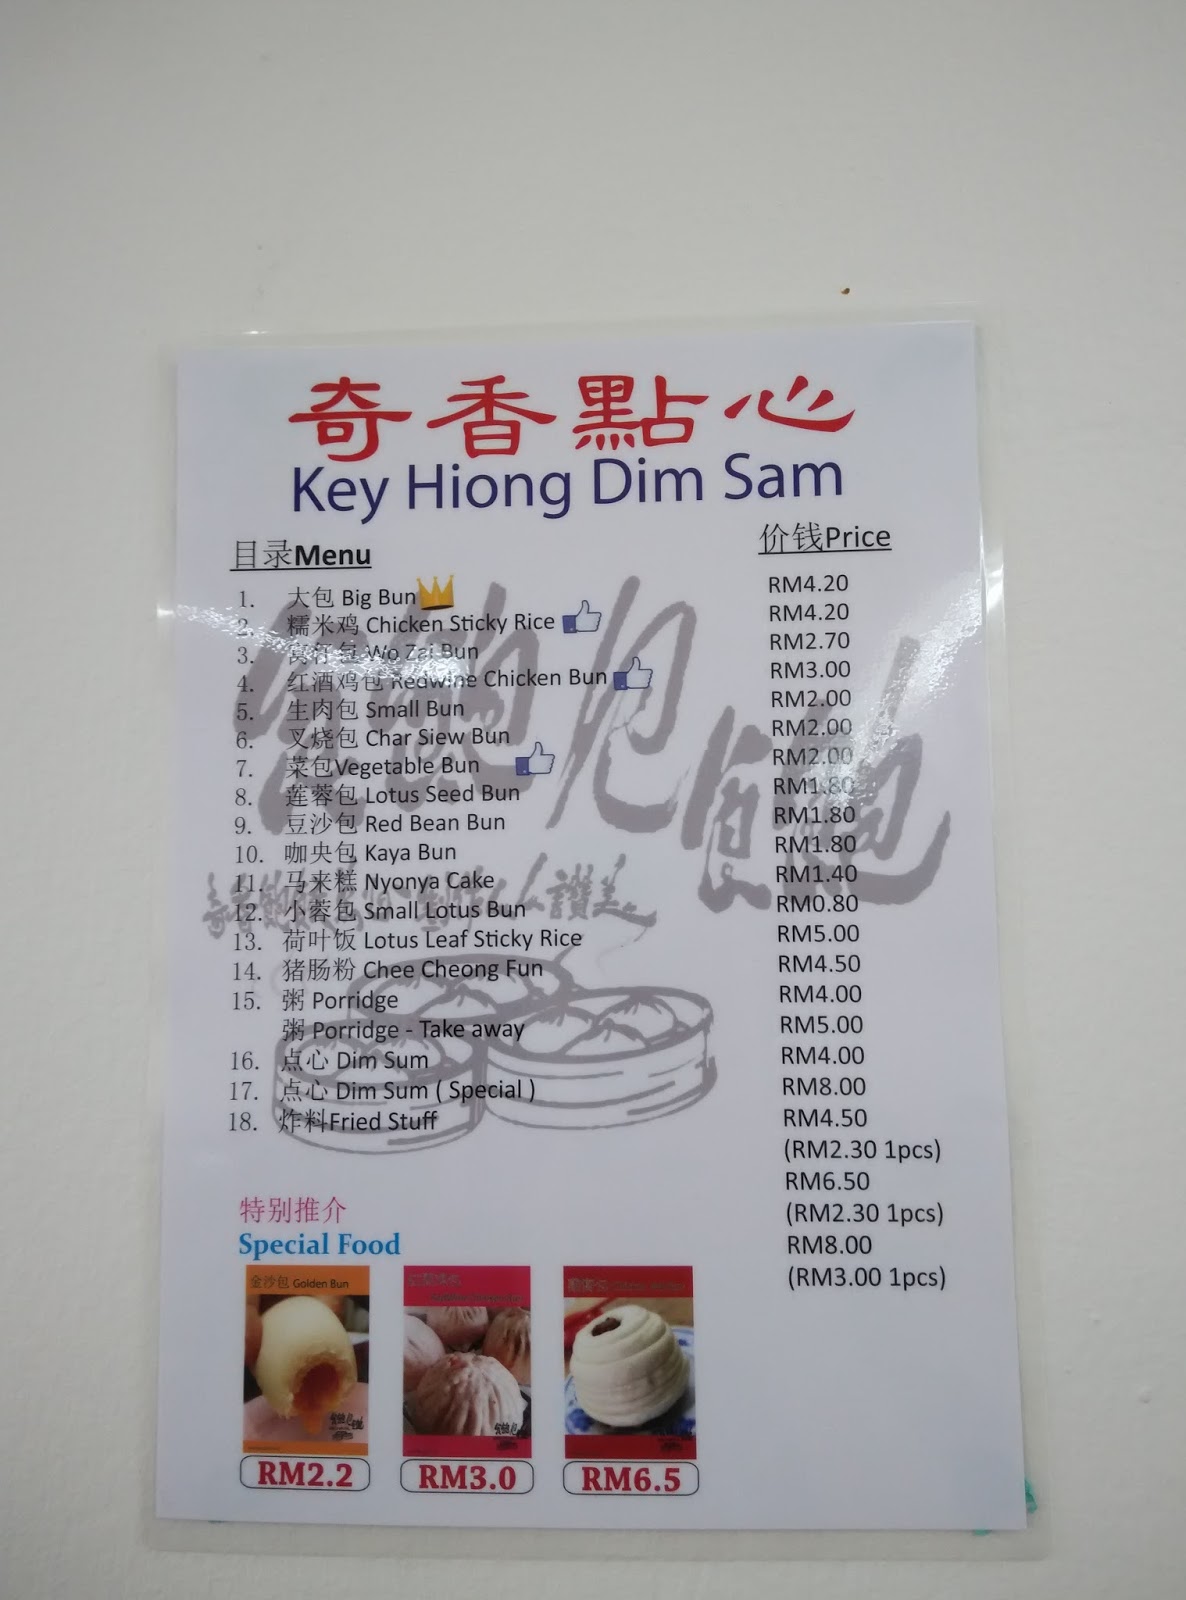 奇香點心
Key Hiong Dim Sam
目录Menu 价钱Price
1. 大包 Big Bun RM4.20
2. 糯米鸡 Chicken Sticky Rice RM4.20
3. 窝仔包 Wo Zai Bun RM2.70
4. 红酒鸡包 Redwine Chicken Bun RM3.00
5. 生肉包 Small Bun RM2.00
6. 叉烧包 Char Siew Bun RM2.00
7. 菜包Vegetable Bun RM2.00
8. 莲蓉包 Lotus Seed Bun RM1.80
9. 豆沙包 Red Bean Bun RM1.80
10. 咖央包 Kaya Bun RM1.80
11. 马来糕 Nyonya Cake RM1.40
12. 小蓉包 Small Lotus Bun RM0.80
13. 荷叶饭 Lotus Leaf Sticky Rice RM5.00
14. 猪肠粉 Chee Cheong Fun RM4.50
15. 粥 Porridge RM4.00
粥 Porridge - Take away RM5.00
16. 点心 Dim Sum RM4.00
17. 点心 Dim Sum ( Special ) RM8.00
18. 炸料Fried Stuff RM4.50
(RM2.30 1pcs)
RM6.50
(RM2.30 1pcs)
RM8.00
(RM3.00 1pcs)
特别推介
Special Food
金沙包 Golden Bun
RM2.2
RM3.0
RM6.5